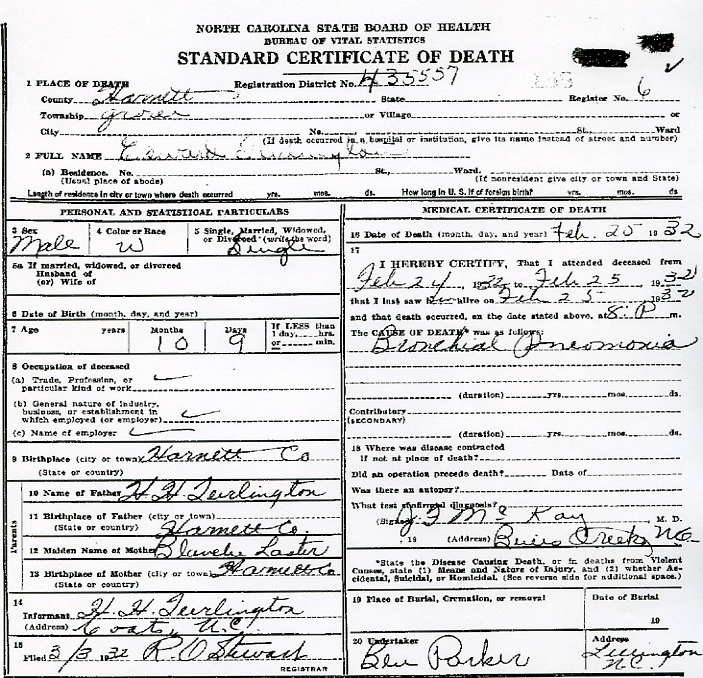 NORTH CAROLINA STATE BOARD OF HEALTH
BUREAU OF VITAL STATISTICS
STANDARD CERTIFICATE OF DEATH
1 PLACE OF DEATH Registration District No. 435557
County Harnett State Register No. 6
Township Grove or Village or
City No. St., Ward
(If death occurred in a hospital or institution, give its name instead of street and number)
2 FULL NAME Edward
(a) Residence. No. St., Ward.
(Usual place of abode) (If nonresident give city or town and State)
Length of residence in city or town where death occurred yrs. mos. ds. How long in U. S. if of foreign birth? yrs. mos. ds.
PERSONAL AND STATISTICAL PARTICULARS
3 Sex 4 Color or Race 5 Single, Married, Widowed,
or Divorced (write the word)
Male W Single
5a If married, widowed, or divorced
Husband of
(or) Wife of
6 Date of Birth (month, day, and year)
7 Age years Months Days If LESS than
1 day, hrs.
or min.
10 9
8 Occupation of deceased
(a) Trade, Profession, or
particular kind of work
(b) General nature of industry,
business, or establishment in
which employed (or employer)
(c) Name of employer
9 Birthplace (city or town) Harnett Co
(State or country)
Parents
10 Name of Father H H Turlington
11 Birthplace of Father (city or town)
(State or country) Harnett Co.
12 Maiden Name of Mother Blanche Laster
13 Birthplace of Mother (city or town) Harnett Co
(State or country)
14
Informant H. H. Turlington
(Address) Coats, N.C.
15
Filed 3/3 1932 R. O Stewart
REGISTRAR
MEDICAL CERTIFICATE OF DEATH
16 Date of Death (month, day, and year) Feb. 25 1932
17
I HEREBY CERTIFY, That I attended deceased from
Feb 24, 1932, to Feb 25, 1932
that I last saw alive on Feb 25 1932
and that death occurred, on the date stated above, at 8. P m.
The CAUSE OF DEATH* was as follows:
Bronchial Pneomonia
(duration) yrs. mos. ds.
Contributory
(SECONDARY)
(duration) yrs. mos. ds.
18 Where was disease contracted
if not at place of death?
Did an operation precede death? Date of
Was there an autopsy?
What test confirmed diagnosis?
(Signed) J F McKay, M. D.
, 19 (Address) Buies Creek, N.C.
*State the Disease Causing Death, or in deaths from Violent
Causes, state (1) Means and Nature of Injury, and (2) whether Ac-
cidental, Suicidal, or Homicidal. (See reverse side for additional space.)
19 Place of Burial, Cremation, or removal Date of Burial
19
20 Undertaker Address
Ben Parker Lillington
N.C.